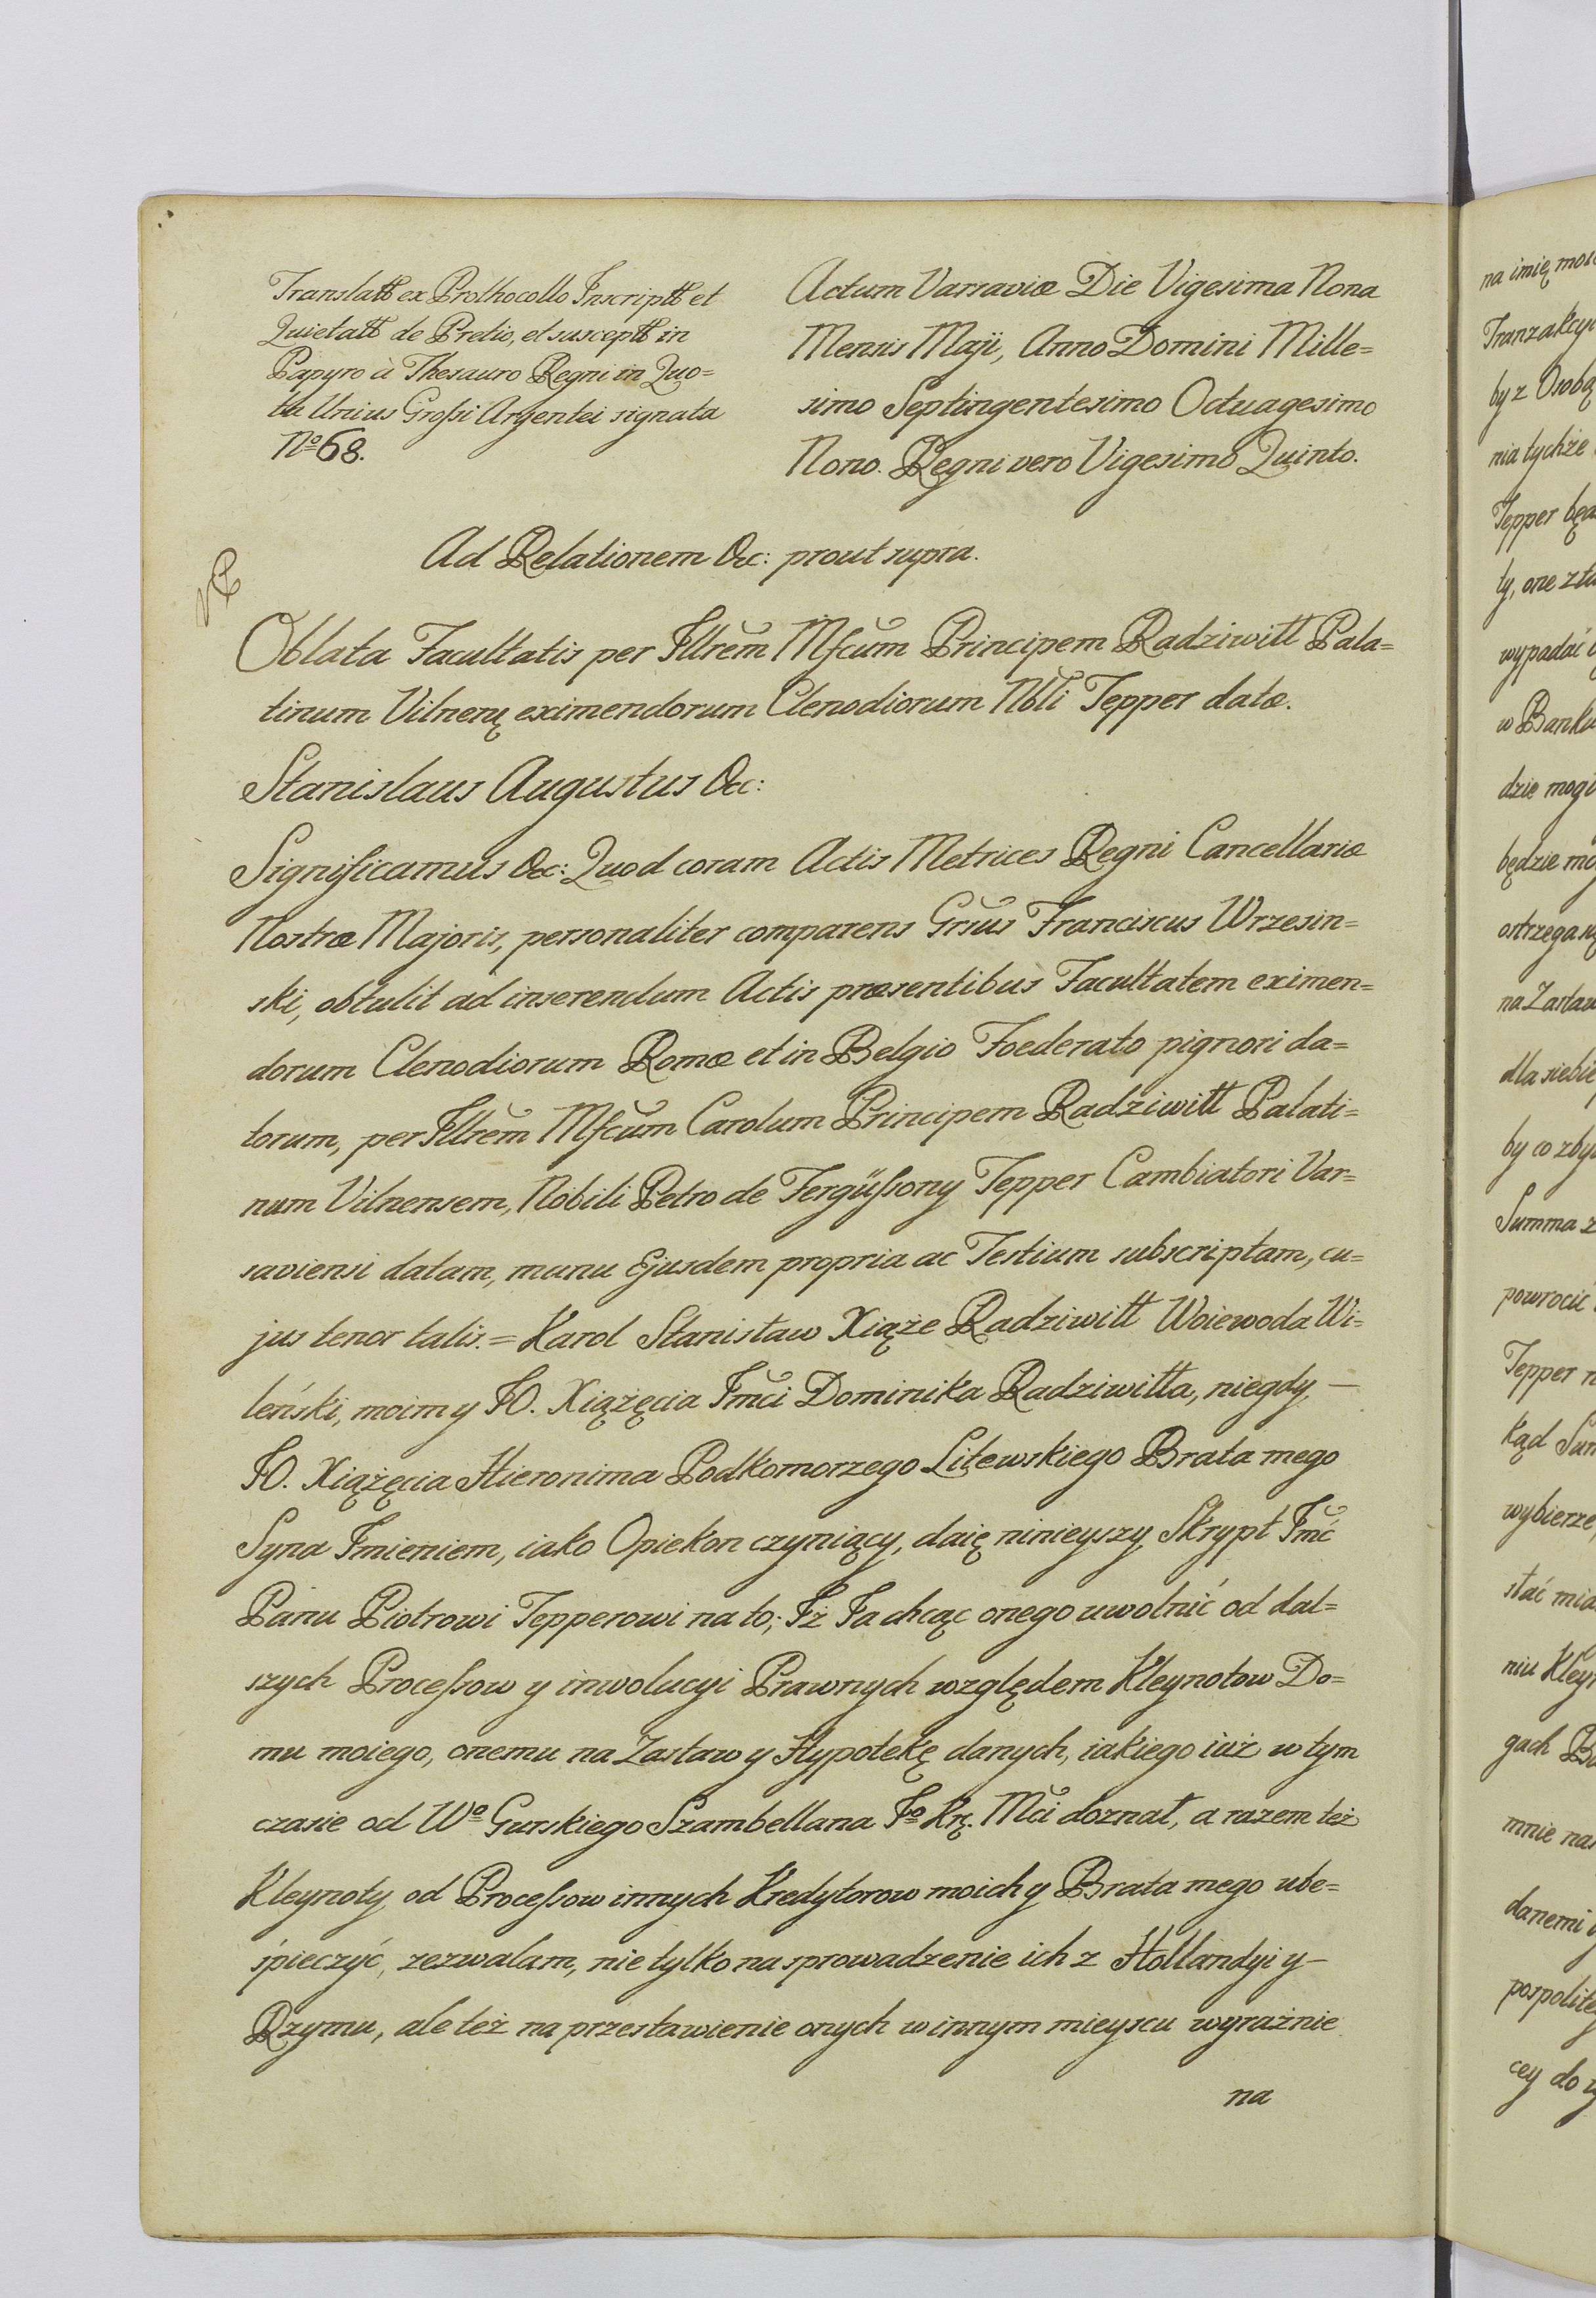 Translatt ex Prothocollo Inscriptt et
Quietatt de Pretio, et susceptt in
Papyro à Thesauro Regni in Quo=
ta Unius Grossi Argentei signata
No 68.
Actum Varsaviæ Die Vigesima Nona
Mensis Maji, Anno Domini Mille=
simo Septingentesimo Octuagesimo
Nono. Regni vero Vigesimo Quinto.
Ad Relationem &c: prout supra.
Oblata Facultatis per Illrem Mfcum Principem Radziwiłł Pala=
tinum Vilnenę eximendorum Clenodiorum Nbli Tepper datæ.
Stanislaus Augustus &c:
Significamus &c: Quod coram Actis Metrices Regni Cancellariæ
Nostræ Majoris, personaliter comparens Grsus Franciscus Wrzesin=
ski, obtulit ad inserendum Actis præsentibus Facultatem eximen=
dorum Clenodiorum Romæ et in Belgio Foederato pignori da=
torum, per Illrem Mfcum Carolum Principem Radziwiłł Palati=
num Vilnensem, Nobili Petro de Fergüssony Tepper Cambiatori Var=
saviensi datam, manu Ejusdem propria ac Testium subscriptam, cu=
jus tenor talis. = Karol Stanisław Xiąże Radziwiłł Woiewoda Wi=
leński, moim y JO. Xiążęcia Jmci Dominika Radziwiłła, niegdy, —
JO. Xiążęcia Hieronima Podkomorzego Litewskiego Brata mego
Syna Imieniem, iako Opiekon czyniący, daię ninieyszy Skrypt Jmć
Panu Piotrowi Tepperowi na to; Iż Ja chcąc onego uwolnić od dal=
szych Processow y inwolucyi Prawnych względem Kleynotow Do=
mu moiego, onemu na Zastaw y Hypotekę danych, iakiego iuż w tym
czasie od Wo Gurskiego Szambellana Jo Krę. Mci doznał, a razem też
Kleynoty od Processow innych Kredytorow moich y Brata mego ube=
śpieczyć, zezwalam, nie tylko na sprowadzenie ich z Hollandyi y —
Rzymu, ale też na przestawienie onych w innym mieyscu wyraźnie
na
na imię
by z Osobą
nia tychże
Tepper
wypadać
w Banku
dzie
będzie
ostrzega
dla siebie
by co
Summa
powrocic
Tepper
kąd
wybierze
gach
mnie
danemi
cey do